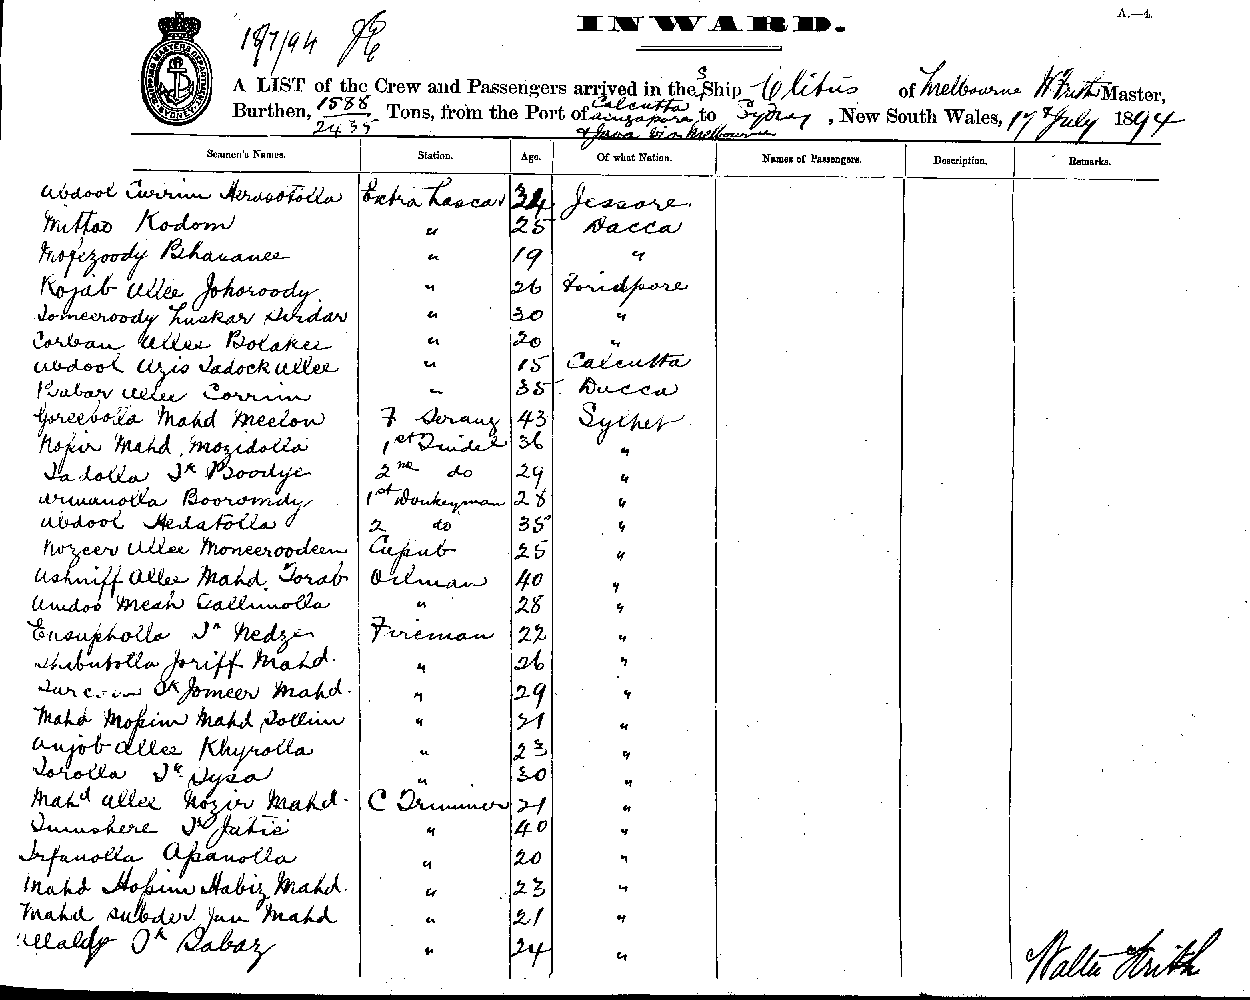 INWARD.
A.—4.
18/7/94
A LIST of the Crew and Passengers arrived in the S Ship Clitus of Melbourne W Frith Master,
Burthen, 1588 Tons, from the Port of Calcutta Singapore to Sydney, New South Wales, 17th July 1894
2435 & Java via Melbourne
Seamen's Names. Station. Age. Of what Nation. Names of Passengers. Description. Remarks.
Abdool Currim Herasotolla Extra Lascar 34 Jessore
Mittoo Kodom " 25 Dacca
Mofezoody Bhananee " 19 "
Rojab Allee Johoroody " 26 Foridpore
Jomeeroody Luskar Sirdar " 30 "
Corban Allee Bolakee " 20 "
Abdool Azis Sadock Allee " 15 Calcutta
Babar Allee Corrim " 35 Dacca
Goreebolla Mahd Meelon F Serang 43 Sylhet
Nosir Mahd Mozidolla 1st Tindel 36 "
Sadolla Sk Boodye 2nd do 29 "
Armanolla Booromdy 1st Donkeyman 28 "
Abdool Hedatolla 2 do 35 "
Nozeer Allee Moneeroodeen 25 "
Ashniff Allee Mahd Torab Oilman 40 "
Amdoo Meah Callimolla " 28 "
Ensupholla Sk Nedze Fireman 22 "
Shabutolla Joriff Mahd. " 26 "
Sk Jomeer Mahd. " 29 "
Mahd Mosim Mahd Sollim " 21 "
Anjob Allee Khyrolla " 23 "
Torolla Sk Sysa " 30 "
Mahd Allee Nozir Mahd. C Trimmer 21 "
Sumshere Sk Jatie " 40 "
Irfanolla Asanolla " 20 "
Mahd Hosim Habiz Mahd. " 23 "
Mahd Subder Jan Mahd " 21 "
Sk Babaz " 24 "
Walter Frith